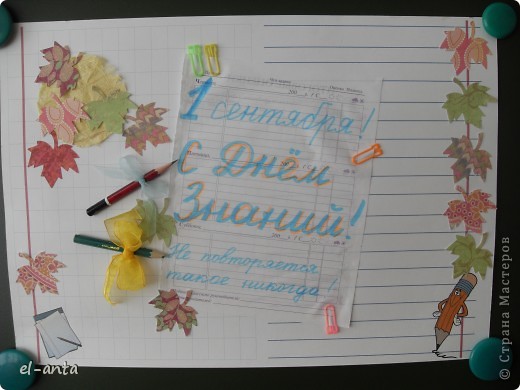 1 сентября!
С Днём
Знаний!
Не повторяется
такое никогда!
el-anta
© Страна Мастеров